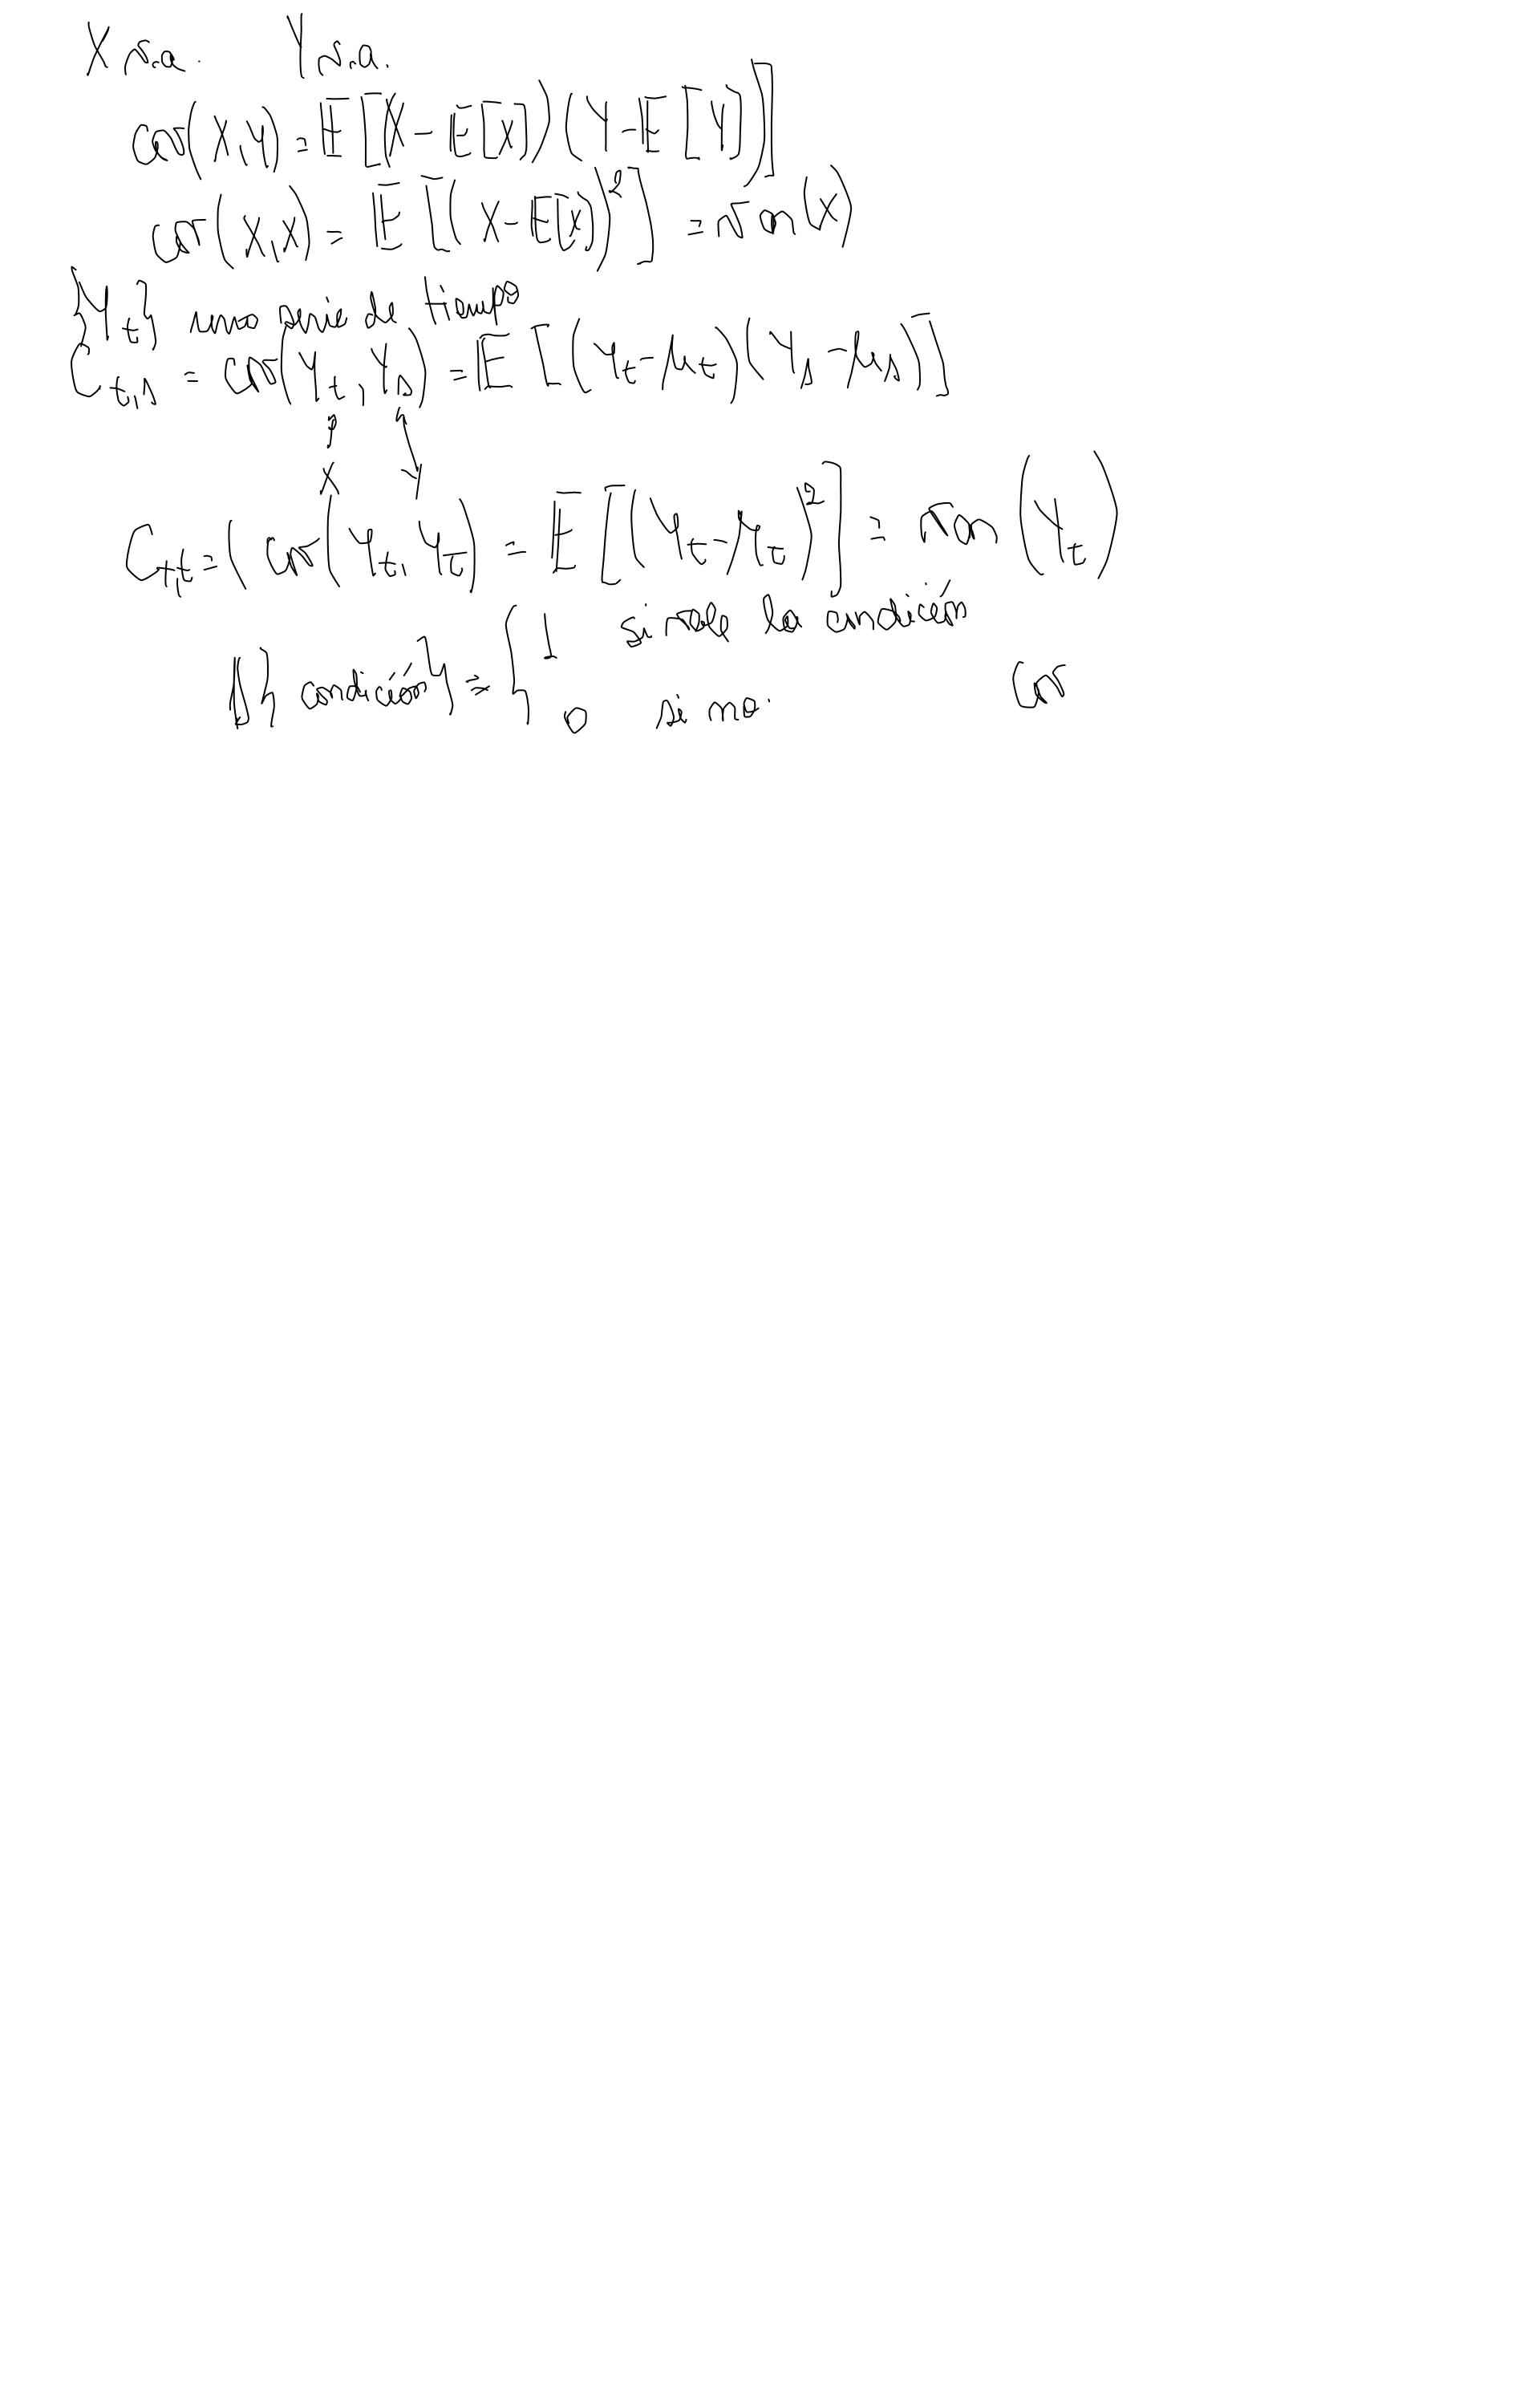 X v.a. Y v.a.
cov(X,Y) = E[(X-E[X])(Y-E[Y])]
cov(X,X) = E[(X-E[X])²] = var(X)
{Y_t} una serie de tiempo
C_{t,s} = cov(Y_t, Y_s) = E[(Y_t-μ_t)(Y_s-μ_s)]
X Y
C_{t,t} = (cov(Y_t, Y_t) = E[(Y_t-μ_t)²] = var(Y_t)
1{condición} = { 1 si vale la condición
0 si no.
cov